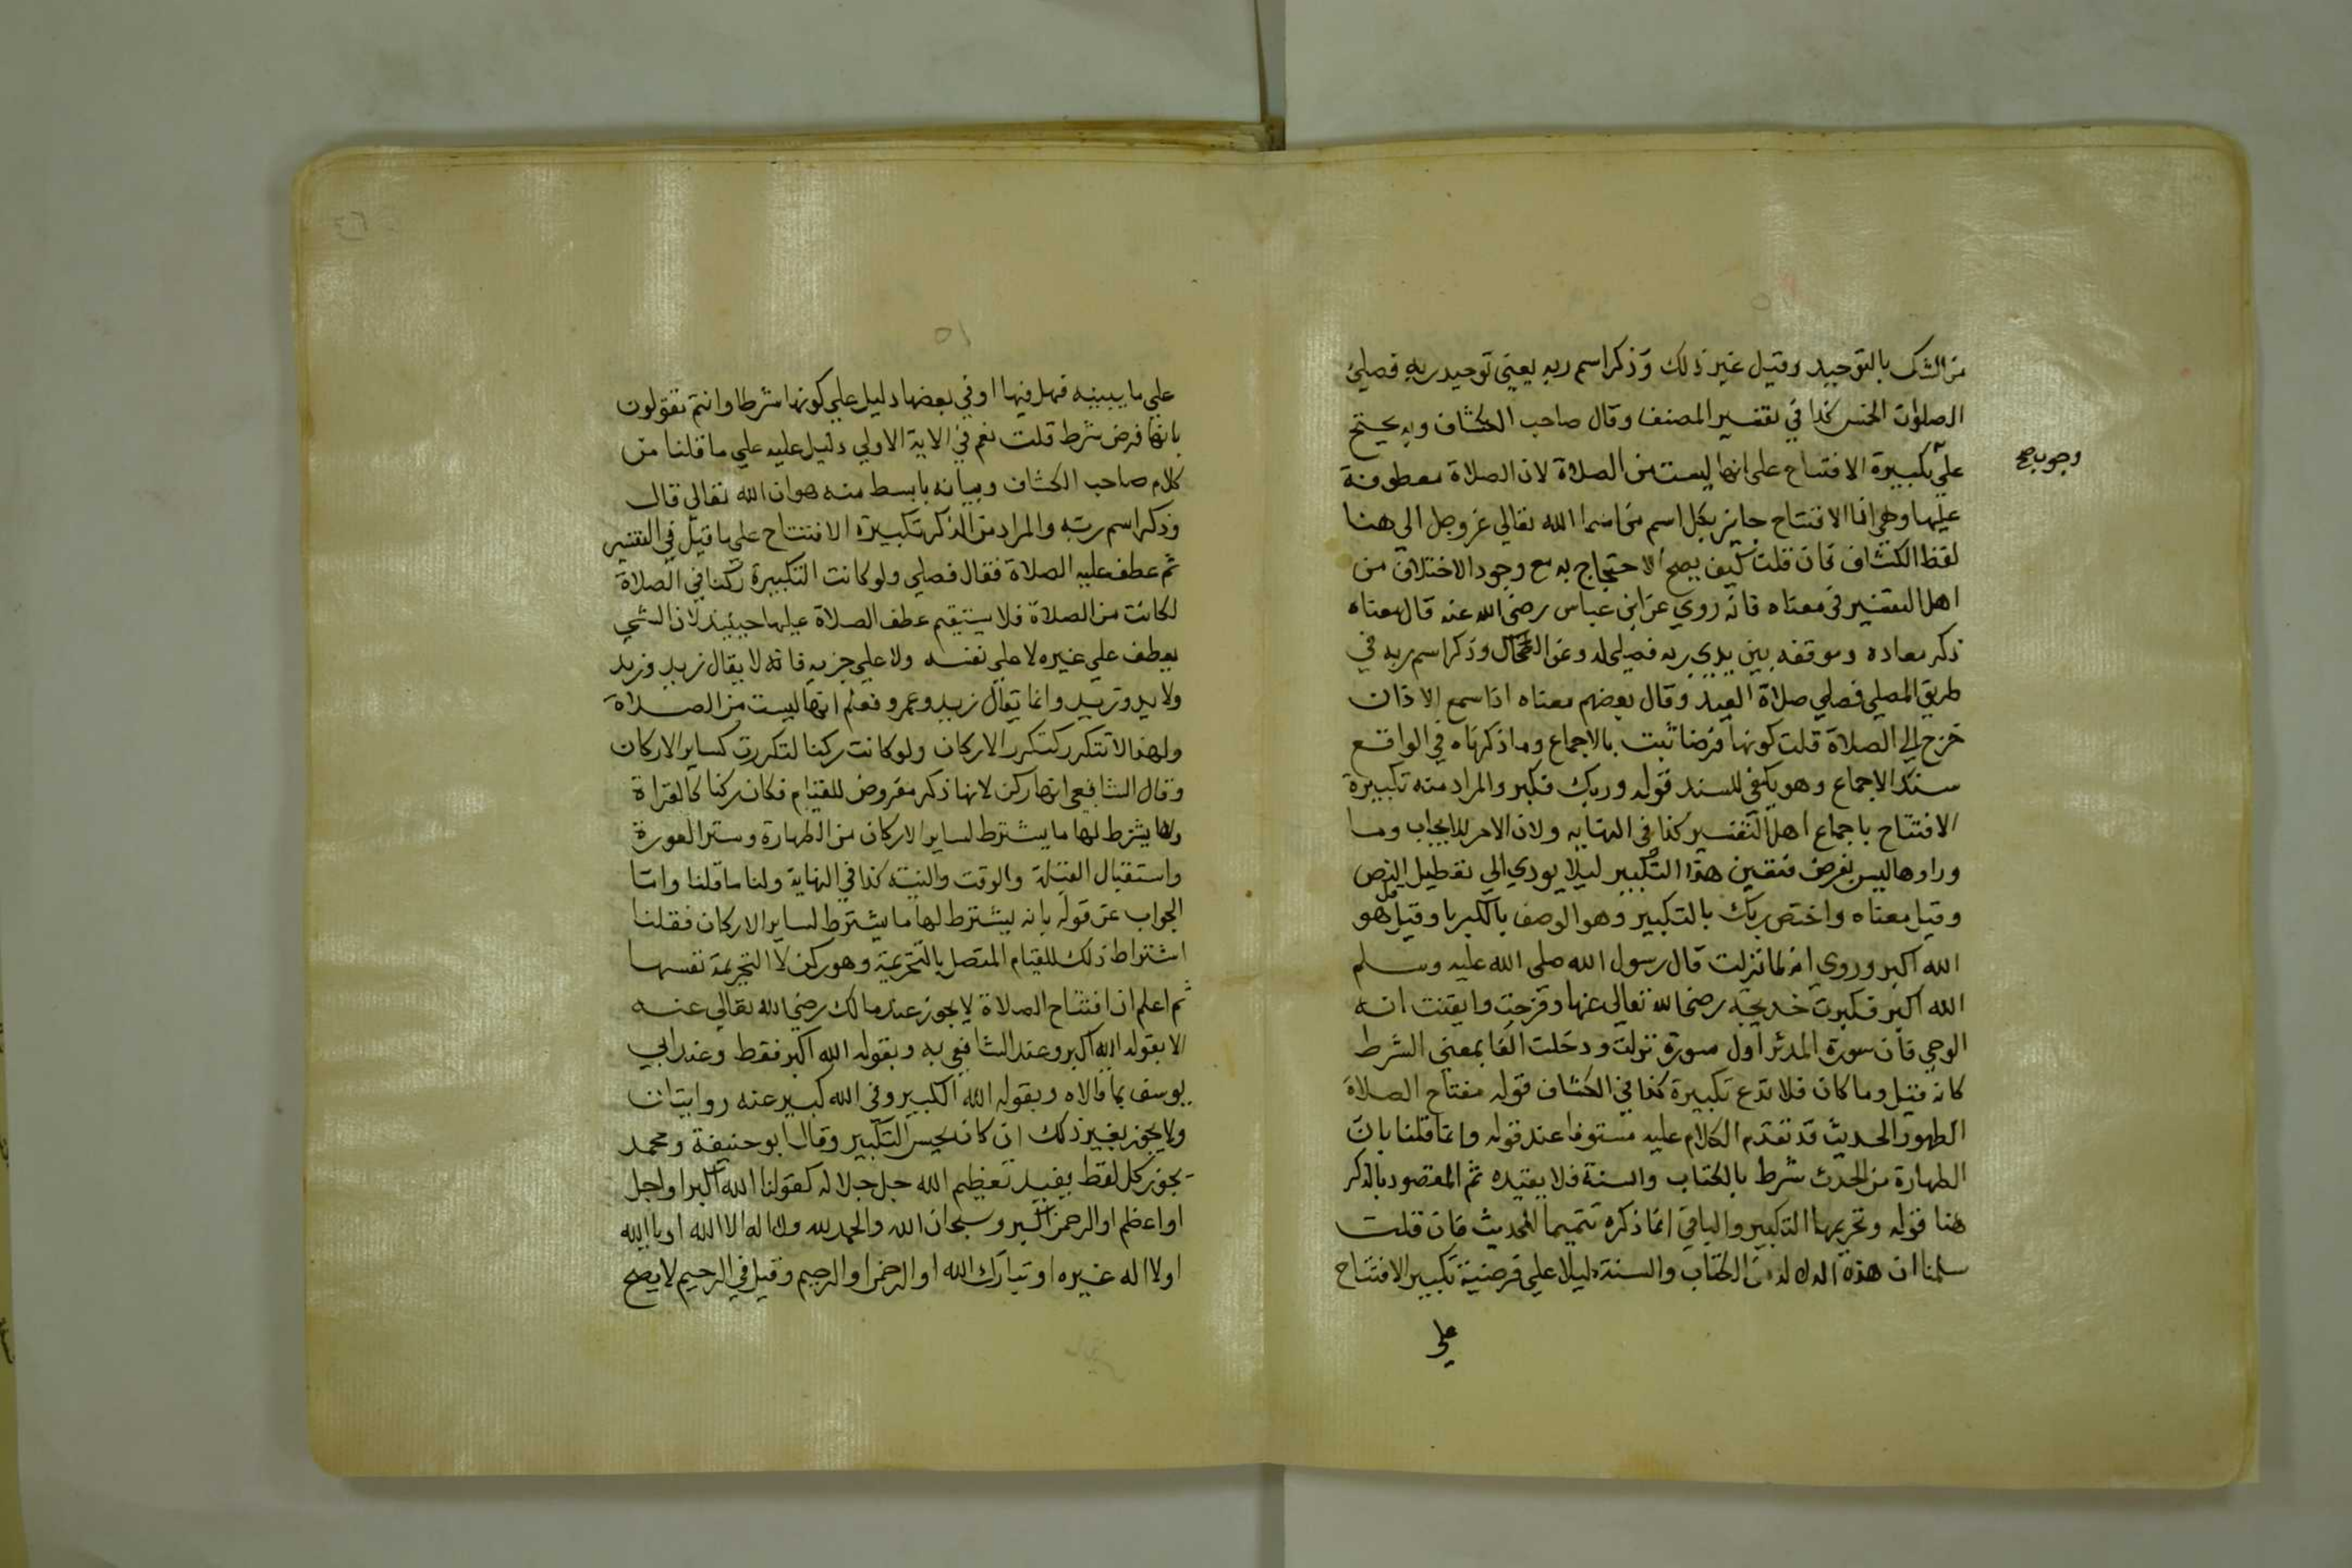 من الشرك بالتوحيد وقيل غير ذلك وذكر اسم ربه يعني توحيد ربه فصلي
الصلوات الخمس كذا في تفسير المصنف وقال صاحب الكشاف وبه يحتج
علي تكبيرة الافتتاح علي انها ليست من الصلاة لان الصلاة معطوفة
وجوب صح
عليها وهي ان الافتتاح جايز بكل اسم من اسما الله تعالي عز وجل الي هنا
لفظ الكشاف فان قلت كيف يصح الاحتجاج به مع وجود الاختلاف من
اهل التفسير في معناه فانه روي عن ابن عباس رضي الله عنه قال معناه
ذكر معاده وموقفه بين يدي ربه فصلي له وعن الضحاك وذكر اسم ربه في
طريق المصلي فصلي صلاة العيد وقال بعضهم معناه اذا سمع الاذان
خرج الي الصلاة قلت كونها فرضا ثبت بالاجماع وما ذكرناه في الواقع
سند الاجماع وهو يكفي للسند قوله وربك فكبر والمراد منه تكبيرة
الافتتاح باجماع اهل التفسير كذا في النهايه ولان الامر للايجاب وما
وراها ليس بفرض فتعين هذا التكبير ليلا يودي الي تعطيل النص
وقيل معناه واختص ربك بالتكبير وهو الوصف بالكبريا وقيل هو
الله اكبر وروي انه لما نزلت قال رسول الله صلي الله عليه وسلم
الله اكبر فكبرت خديجه رضي الله تعالي عنها وفرحت وايقنت انه
الوحي فان سورة المدثر اول سورة نزلت ودخلت الفا بمعني الشرط
كانه قيل وما كان فلا تدع تكبيرة كذا في الكشاف قوله مفتاح الصلاة
الطهور الحديث قد تقدم الكلام عليه مستوفا عند قوله وانما قلنا بان
الطهارة من الحدث شرط بالكتاب والسنة فلا يفيده ثم المقصود بالذكر
هنا قوله وتحريمها التكبير والباقي انما ذكره تتميما للحديث فان قلت
سلمنا ان هذه الدلة من الكتاب والسنة دليلا علي فرضية تكبير الافتتاح
علي
٥١
علي ما يبينه فهل فيها او في بعضها دليل علي كونها شرطا وانتم تقولون
بانها فرض شرط قلت نعم في الاية الاولي دليل عليه علي ما قلنا من
كلام صاحب الكشاف وبيانه بابسط منه هو ان الله تعالي قال
وذكر اسم ربه والمراد من الذكر تكبيرة الافتتاح علي ما قيل في التفسير
ثم عطف عليه الصلاة فقال فصلي ولو كانت التكبيرة ركنا في الصلاة
لكانت من الصلاة فلا يستقيم عطف الصلاة عليها حينيذ لان الشي
يعطف علي غيره لا علي نفسه ولا علي جزيه فانه لا يقال زيد وزيد
ولا يد وزيد وانما يقال زيد وعمرو فعلم انها ليست من الصلاة
ولهذا لا تتكرر كتكرر الاركان ولو كانت ركنا لتكررت كساير الاركان
وقال الشافعي انها ركن لانها ذكر مفروض للقيام فكان ركنا كالقراة
ولها يشترط لها ما يشترط لساير الاركان من الطهارة وستر العورة
واستقبال القبلة والوقت والنية كذا في النهاية ولنا ما قلنا واما
الجواب عن قوله بانه يشترط لها ما يشترط لساير الاركان فقلنا
اشتراط ذلك للقيام المتصل بالتحريمة وهو ركن لا التحريمة نفسها
ثم اعلم ان افتتاح الصلاة لا يجوز عند مالك رضي الله تعالي عنه
الا بقوله الله اكبر وعند الشافعي به وبقوله الله اكبر فقط وعند ابي
يوسف بما قالاه وبقوله الله الكبير وفي الله كبير عنه روايتان
ولا يجوز بغير ذلك ان كان يحسن التكبير وقال ابو حنيفة ومحمد
يجوز كل لفظ يفيد تعظيم الله جل جلاله كقولنا الله اكبر او اجل
او اعظم او الرحمن اكبر وسبحان الله والحمد لله ولا اله الا الله او بالله
او لا اله غيره او تبارك الله او الرحمن او الرحيم وقيل في الرحيم لا يصح